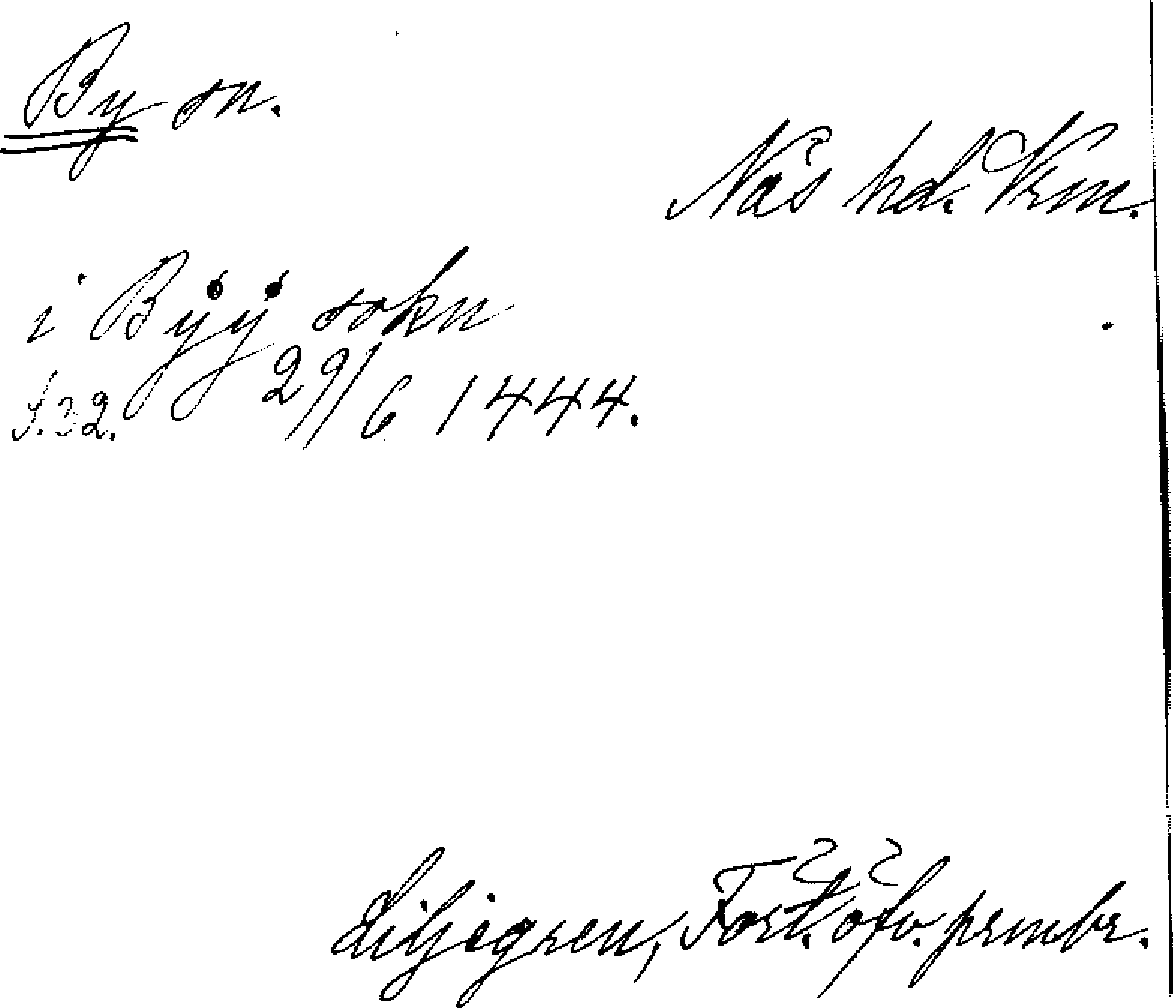 By sn.
Näs hd. Vrm.
i Bÿÿ sokn
S. 32. 29/6 1444.
Liljegren, Fört. öfv. prmbr.